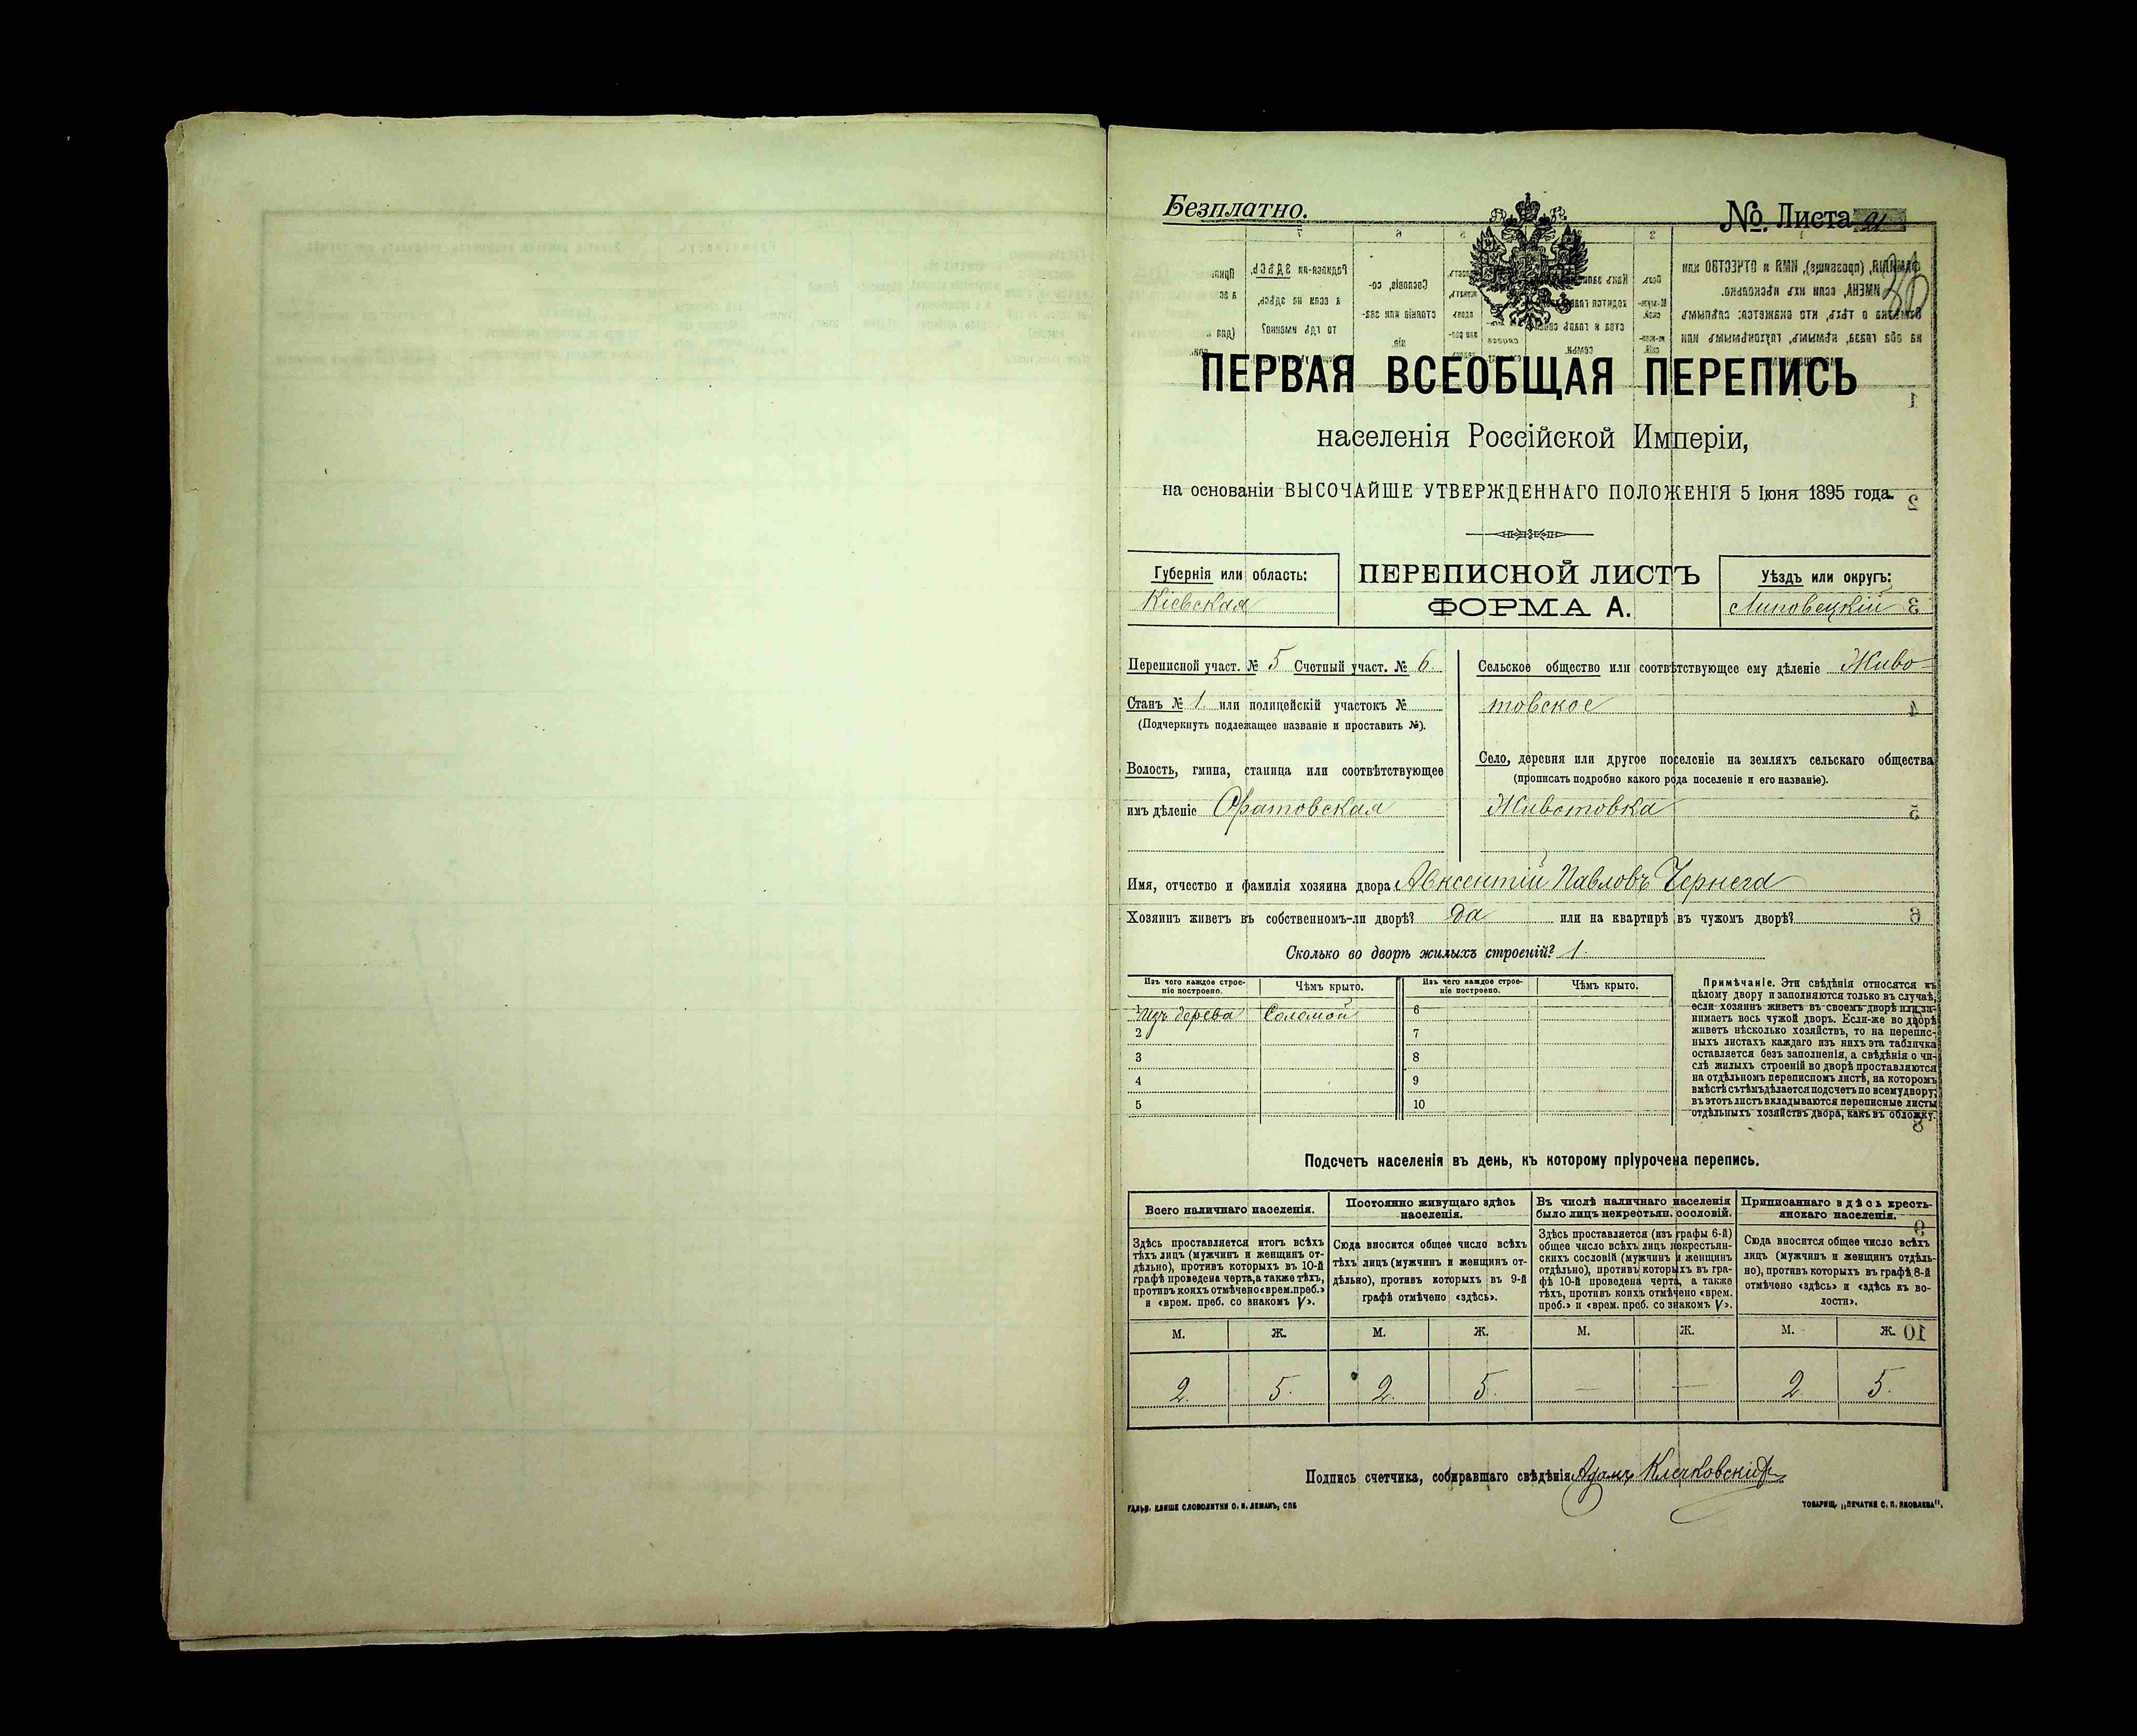 Безплатно.
№ Листа 21
ПЕРВАЯ ВСЕОБЩАЯ ПЕРЕПИСЬ
населенія Россійской Имперіи,
на основаніи ВЫСОЧАЙШЕ УТВЕРЖДЕННАГО ПОЛОЖЕНІЯ 5 Іюня 1895 года.
Губернія или область:
Кіевская
ПЕРЕПИСНОЙ ЛИСТЪ
ФОРМА А.
Уѣздъ или округъ:
Липовецкій
Переписной участ. № 5 Счетный участ. № 6.
Станъ № 1. или полицейскій участокъ №
(Подчеркнуть подлежащее названіе и проставить №).
Волость, гмина, станица или соотвѣтствующее
имъ дѣленіе Оратовская
Сельское общество или соотвѣтствующее ему дѣленіе Живо-
товское
Село, деревня или другое поселеніе на земляхъ сельскаго общества
(прописать подробно какого рода поселеніе и его названіе).
Животовка
Имя, отчество и фамилія хозяина двора Авксентій Павловъ Чернега
Хозяинъ живетъ въ собственномъ-ли дворѣ? Да или на квартирѣ въ чужомъ дворѣ?
Сколько во дворѣ жилыхъ строеній? 1.
Изъ чего каждое строе-
ніе построено.
Чѣмъ крыто.
Изъ чего каждое строе-
ніе построено.
Чѣмъ крыто.
1 Изъ дерева Соломой 6
2 7
3 8
4 9
5 10
Примѣчаніе. Эти свѣдѣнія относятся къ
цѣлому двору и заполняются только въ случаѣ,
если хозяинъ живетъ въ своемъ дворѣ или за-
нимаетъ весь чужой дворъ. Если-же во дворѣ
живетъ нѣсколько хозяйствъ, то на перепис-
ныхъ листахъ каждаго изъ нихъ эта табличка
оставляется безъ заполненія, а свѣдѣнія о чи-
слѣ жилыхъ строеній во дворѣ проставляются
на отдѣльномъ переписномъ листѣ, на которомъ
вмѣстѣ съ тѣмъ дѣлается подсчетъ по всему двору;
въ этотъ листъ вкладываются переписные листы
отдѣльныхъ хозяйствъ двора, какъ въ обложку.
Подсчетъ населенія въ день, къ которому пріурочена перепись.
Всего наличнаго населенія.
Здѣсь проставляется итогъ всѣхъ
тѣхъ лицъ (мужчинъ и женщинъ от-
дѣльно), противъ которыхъ въ 10-й
графѣ проведена черта, а также тѣхъ,
противъ коихъ отмѣчено «врем. преб.»
и «врем. преб. со знакомъ V».
Постоянно живущаго здѣсь
населенія.
Сюда вносится общее число всѣхъ
тѣхъ лицъ (мужчинъ и женщинъ от-
дѣльно), противъ которыхъ въ 9-й
графѣ отмѣчено «здѣсь».
Въ числѣ наличнаго населенія
было лицъ некрестьян. сословій.
Здѣсь проставляется (изъ графы 6-й)
общее число всѣхъ лицъ некрестьян-
скихъ сословій (мужчинъ и женщинъ
отдѣльно), противъ которыхъ въ гра-
фѣ 10-й проведена черта, а также
тѣхъ, противъ коихъ отмѣчено «врем.
преб.» и «врем. преб. со знакомъ V».
Приписаннаго здѣсь кресть-
янскаго населенія.
Сюда вносится общее число всѣхъ
лицъ (мужчинъ и женщинъ отдѣль-
но), противъ которыхъ въ графѣ 8-й
отмѣчено «здѣсь» и «здѣсь къ во-
лости».
М. Ж. М. Ж. М. Ж. М. Ж.
2. 5. 2. 5. — — 2 5.
Подпись счетчика, собиравшаго свѣдѣнія Адамъ Клечковскій
ГАЛЬВ. КЛИШЕ СЛОВОЛИТНИ О. И. ЛЕМАНЪ, СПБ
ТОВАРИЩ. „ПЕЧАТНЯ С. П. ЯКОВЛЕВА".